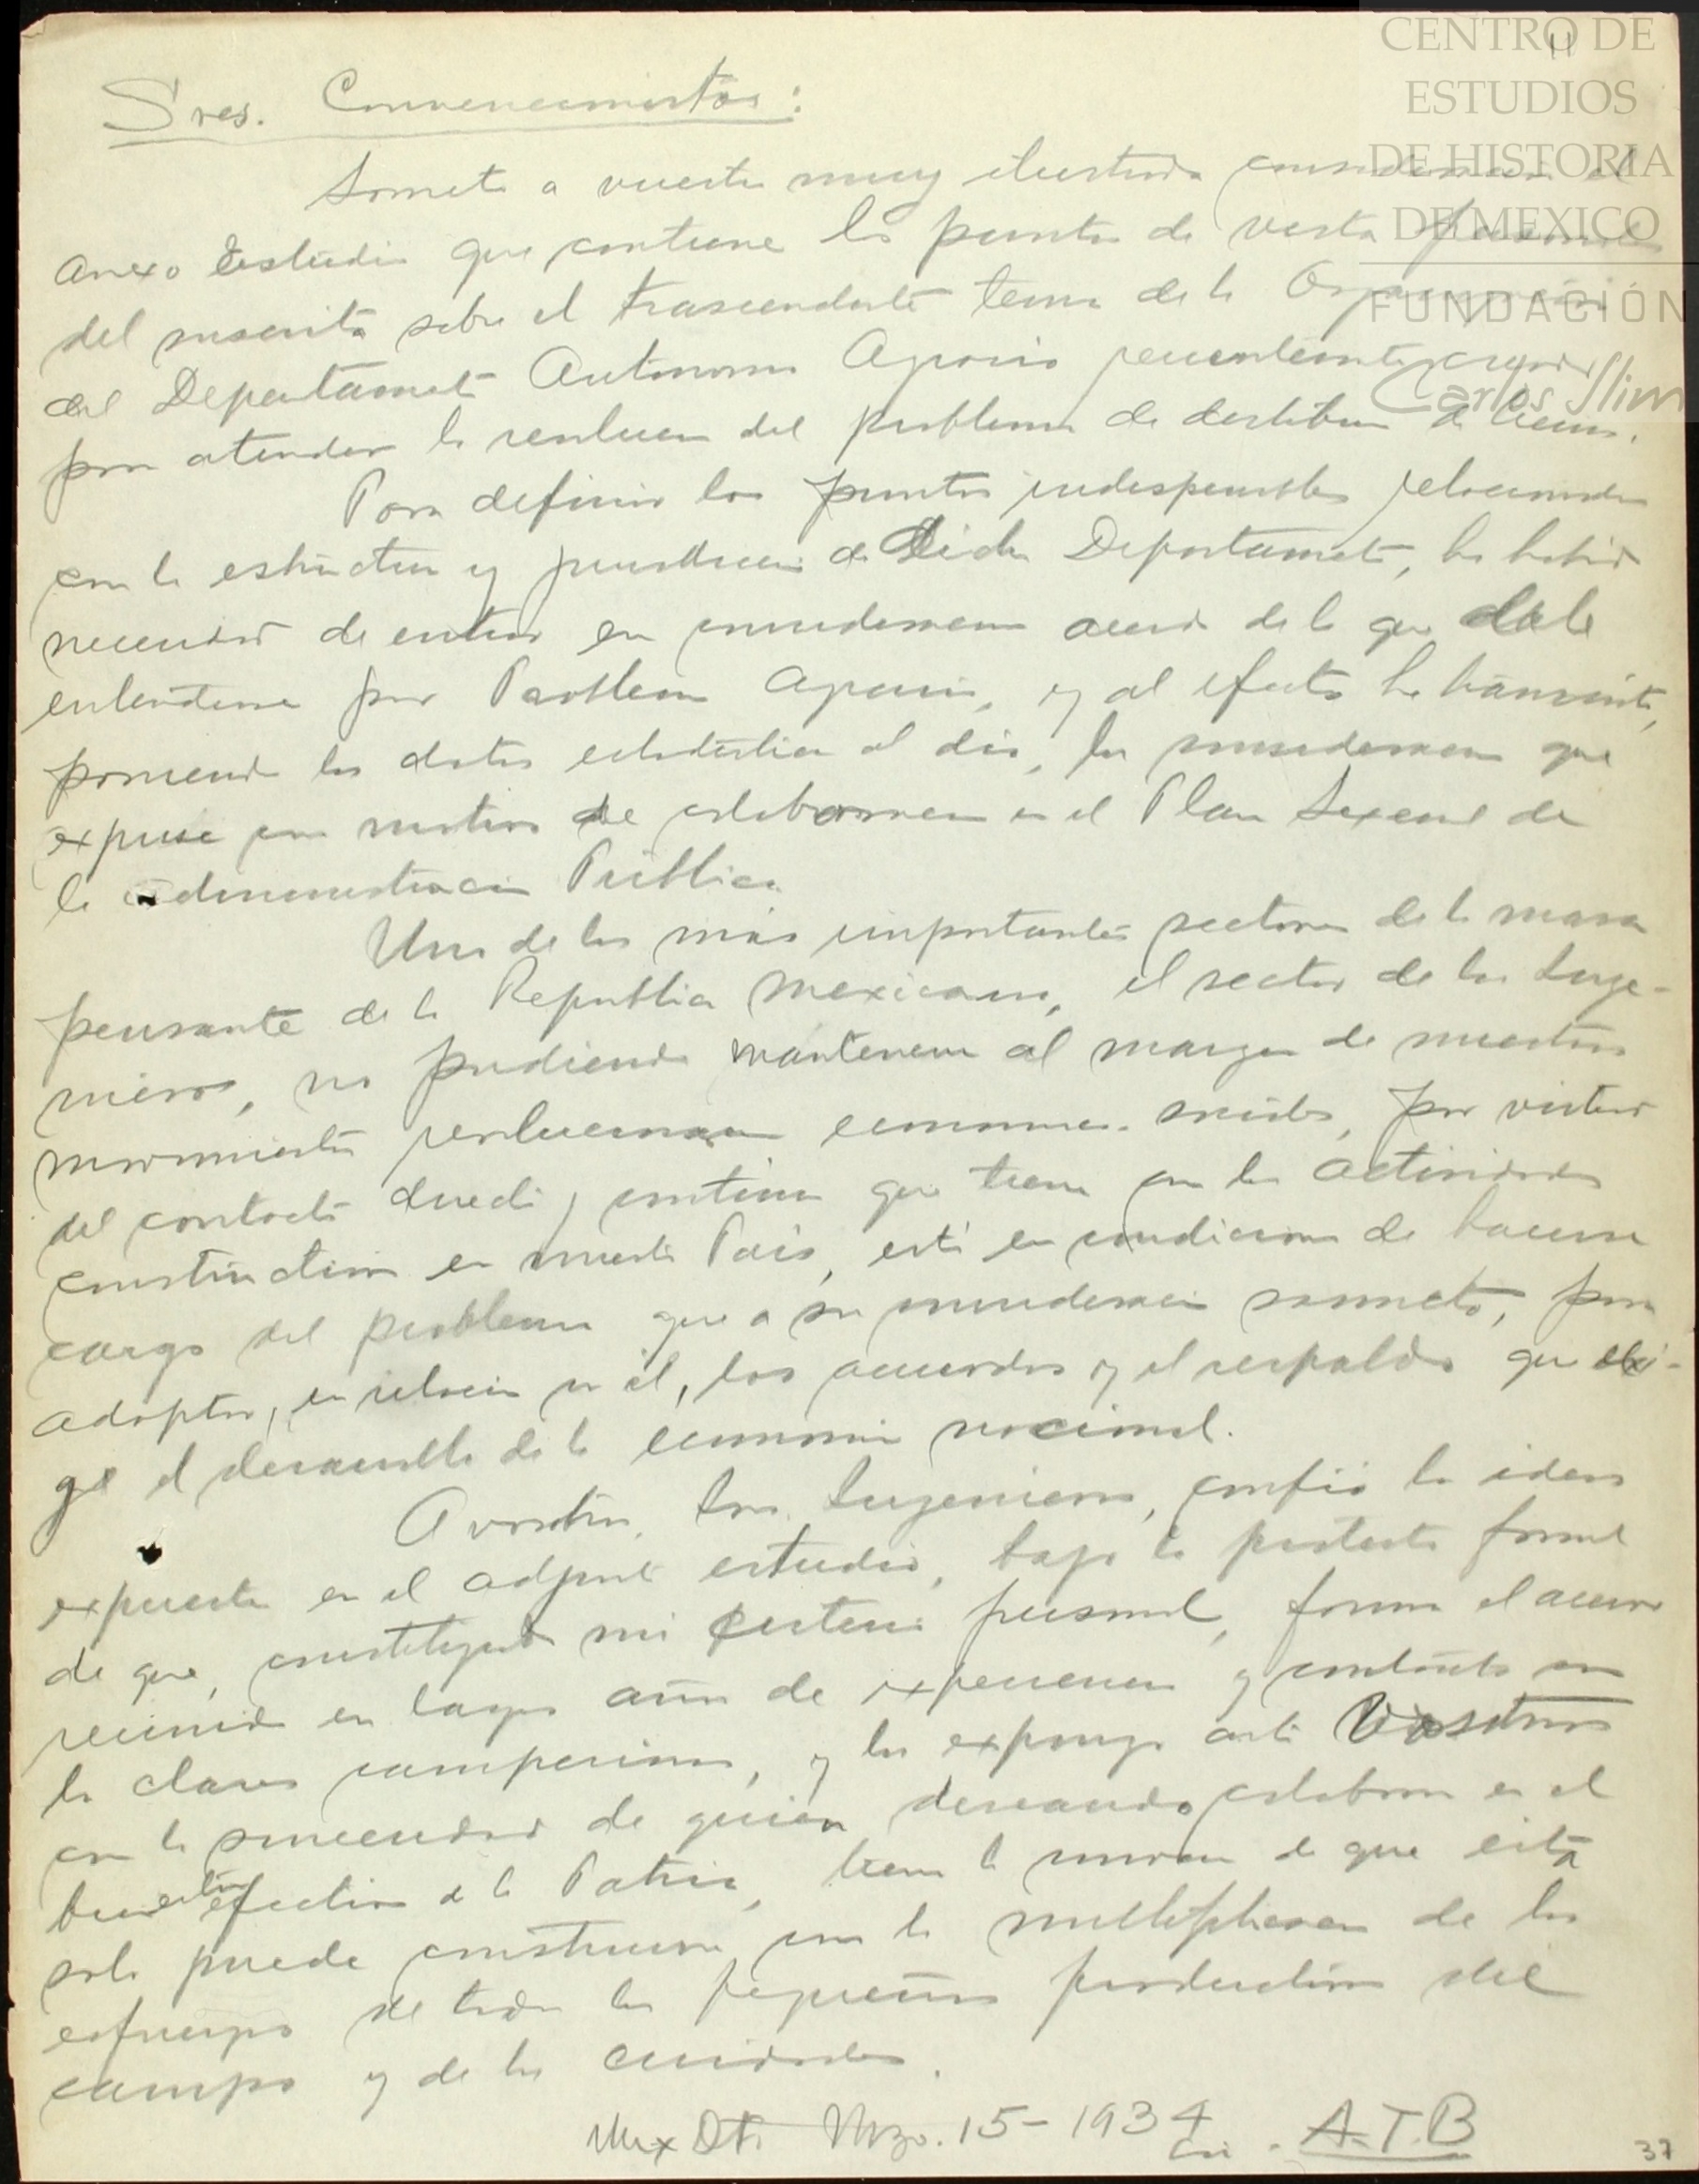 11
CENTRO DE
ESTUDIOS
DE HISTORIA
DE MEXICO
FUNDACIÓN
Carlos Slim
Sres. Convencionistas:
Someto a vuestra muy ilustrada consideración el
anexo Estudio que contiene los puntos de vista personales
del suscrito sobre el trascendente tema de la Organización
del Departamento Autonomo Agrario recientemente creado
para atender la resolucion del problema de distribucion de tierras.
Para definir los puntos indispensables relacionados
con la estructura y jurisdiccion de dicho Departamento, ha habido
necesidad de entrar en consideraciones acerca de lo que debe
entenderse por Problema Agrario, y al efecto he transcrito,
poniendo los datos estadisticos al dia, las consideraciones que
expuse con motivo de colaboracion en el Plan Sexenal de
la administracion Pública.
Uno de los más importantes sectores de la masa
pensante de la Republica Mexicana, el sector de los Inge-
nieros, no pudiendo mantenerse al margen de nuestros
movimientos economico-sociales, por virtud
del contacto directo y continuo que tiene con las actividades
constructivas en nuestro País, está en condiciones de hacerse
cargo del problema que a su consideracion someto, para
adoptar, en relacion con él, los acuerdos y el respaldo que exi-
ge el desarrollo de la economia nacional.
A vosotros, Sres. Ingenieros, confió las ideas
expuestas en el adjunto estudio, bajo la protesta formal
de que, constituyendo mi criterio personal, forma el acervo
reunido en largos años de experiencia y contacto con
las clases campesinas, y las expongo ante Vosotros
con la sinceridad de quién deseando colaborar en el
bienestar efectivo de la Patria, tiene la conviccion de que esta
solo puede construirse con la multiplicacion de los
esfuerzos de todos los pequeños productores del
campo y de las ciudades.
Mex D.F. Mzo. 15-1934
A.T.B
37